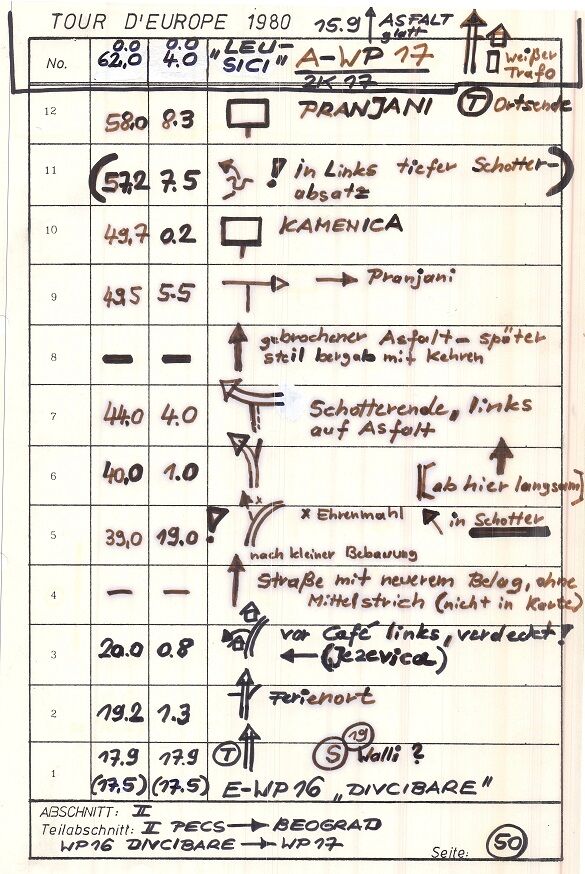 TOUR D'EUROPE 1980 15.9 ASFALT glatt
No. 0.0 62,0 0.0 4.0 "LEU-SICI" A-WP 17 ZK 17 weißer Trafo
12 58.0 8.3 PRANJANI T Ortsende
11 (57,2 7.5 ! in Links tiefer Schotter-absatz)
10 49,7 0.2 KAMENICA
9 49,5 5.5 Pranjani
8 — — gebrochener Asfalt - später steil bergab mit Kehren
7 44,0 4.0 Schotterende, links auf Asfalt
6 40,0 1.0 [ab hier langsam]
5 39,0 19.0! x x Ehrenmahl in Schotter
nach kleiner Bebauung
4 — — Straße mit neuerem Belag, ohne Mittelstrich (nicht in Karte)
3 20.0 0.8 vor Café links, verdeckt! (Jezevica)
2 19.2 1.3 Ferienort
1 17.9 (17,5) 17.9 (17,5) T S 19 Walli?
E-WP 16 "DIVCIBARE"
ABSCHNITT: II
Teilabschnitt: II PECS → BEOGRAD
WP16 DIVCIBARE → WP17
Seite: 50